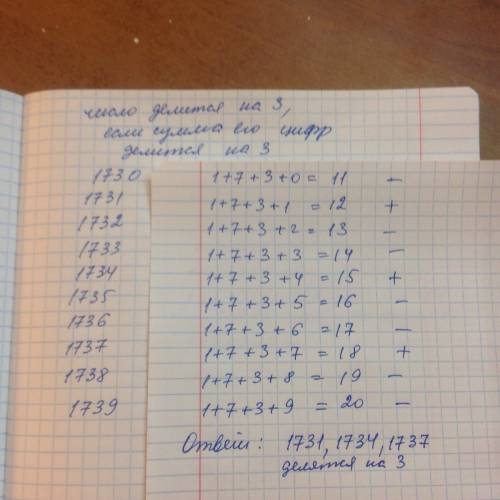 число делится на 3,
если сумма его цифр
делится на 3
1730 1+7+3+0 = 11 –
1731 1+7+3+1 = 12 +
1732 1+7+3+2 = 13 –
1733 1+7+3+3 = 14 –
1734 1+7+3+4 = 15 +
1735 1+7+3+5 = 16 –
1736 1+7+3+6 = 17 –
1737 1+7+3+7 = 18 +
1738 1+7+3+8 = 19 –
1739 1+7+3+9 = 20 –
Ответ: 1731, 1734, 1737
делятся на 3